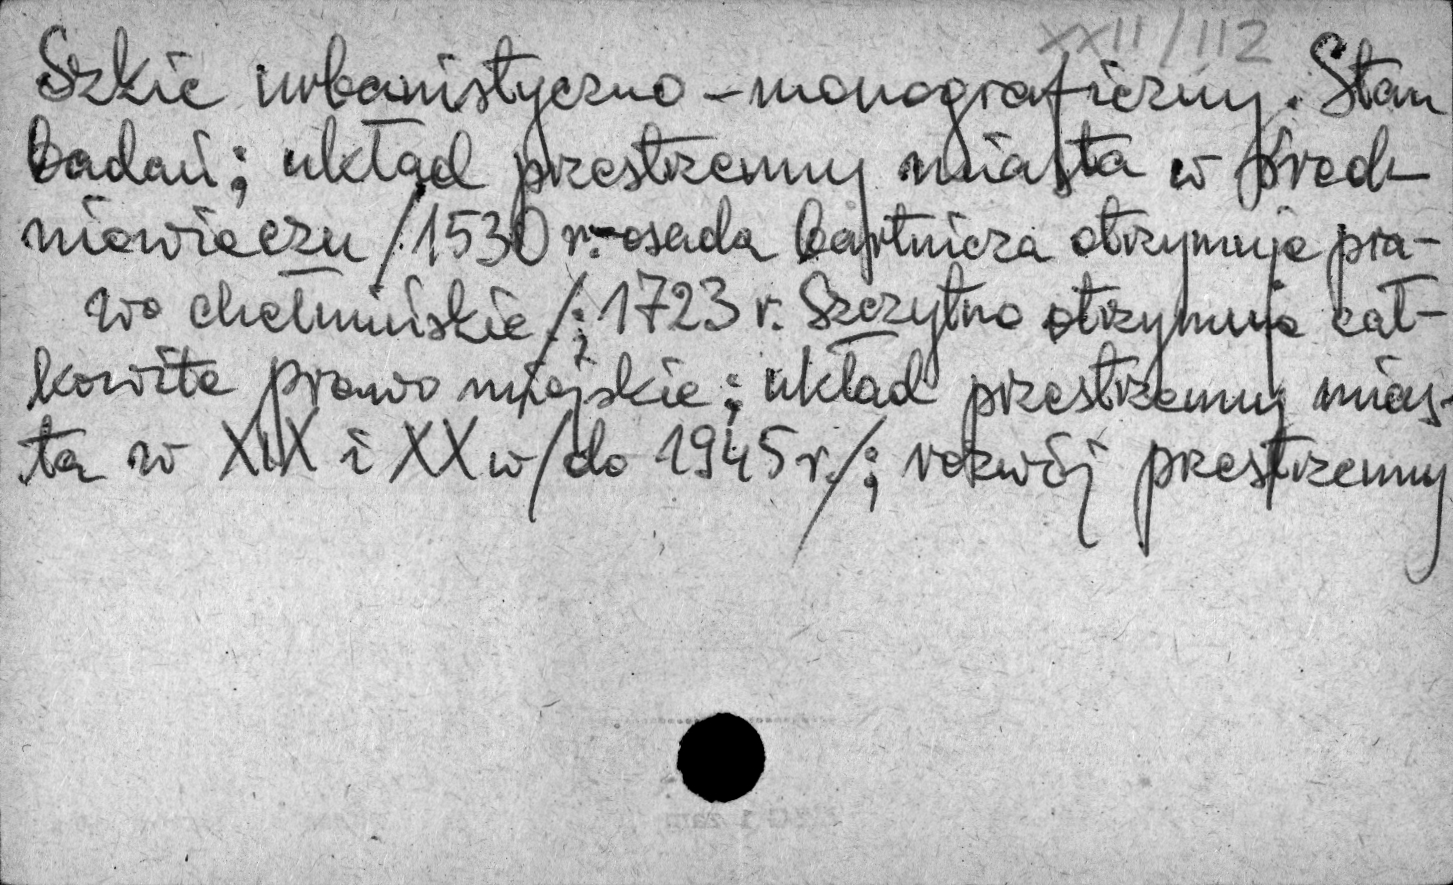 XXII/112
Szkic urbanistyczno-monograficzny. Stan
badań; układ przestrzenny miasta w śred-
niowieczu /1530 r.-osada bartnicza otrzymuje pra-
wo chełmińskie/; 1723 r. Szczytno otrzymuje cał-
kowite prawo miejskie; układ przestrzenny mias-
ta w XIX i XX w/do 1945 r./; rozwój przestrzenny